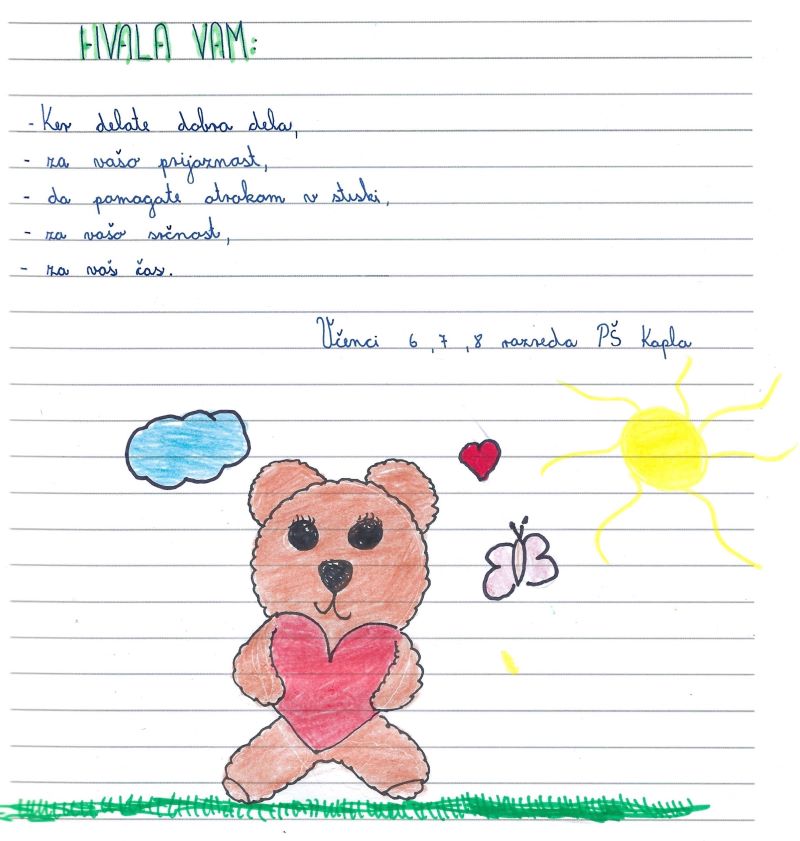 HVALA VAM:
- Ker delate dobra dela,
- za vašo prijaznost,
- da pomagate otrokom v stiski,
- za vašo srčnost,
- za vaš čas.
Učenci 6, 7, 8 razreda PŠ Kapla